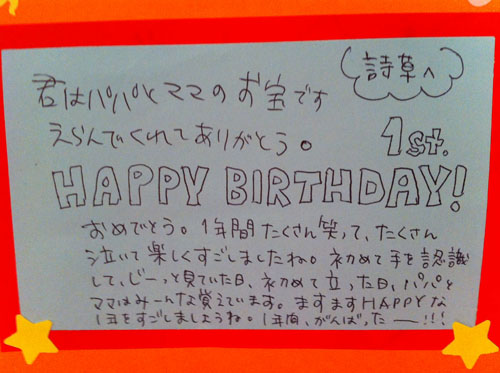 詩草へ
君はパパとママのお宝です
えらんでくれてありがとう。
1st.
HAPPY BIRTHDAY!
おめでとう。1年間たくさん笑って、たくさん
泣いて楽しくすごしましたね。初めて手を認識
して、じーっと見ていた日、初めて立った日、パパと
ママはみーんな覚えています。ますますHAPPYな
1年をすごしましょうね。1年間、がんばったー!!!